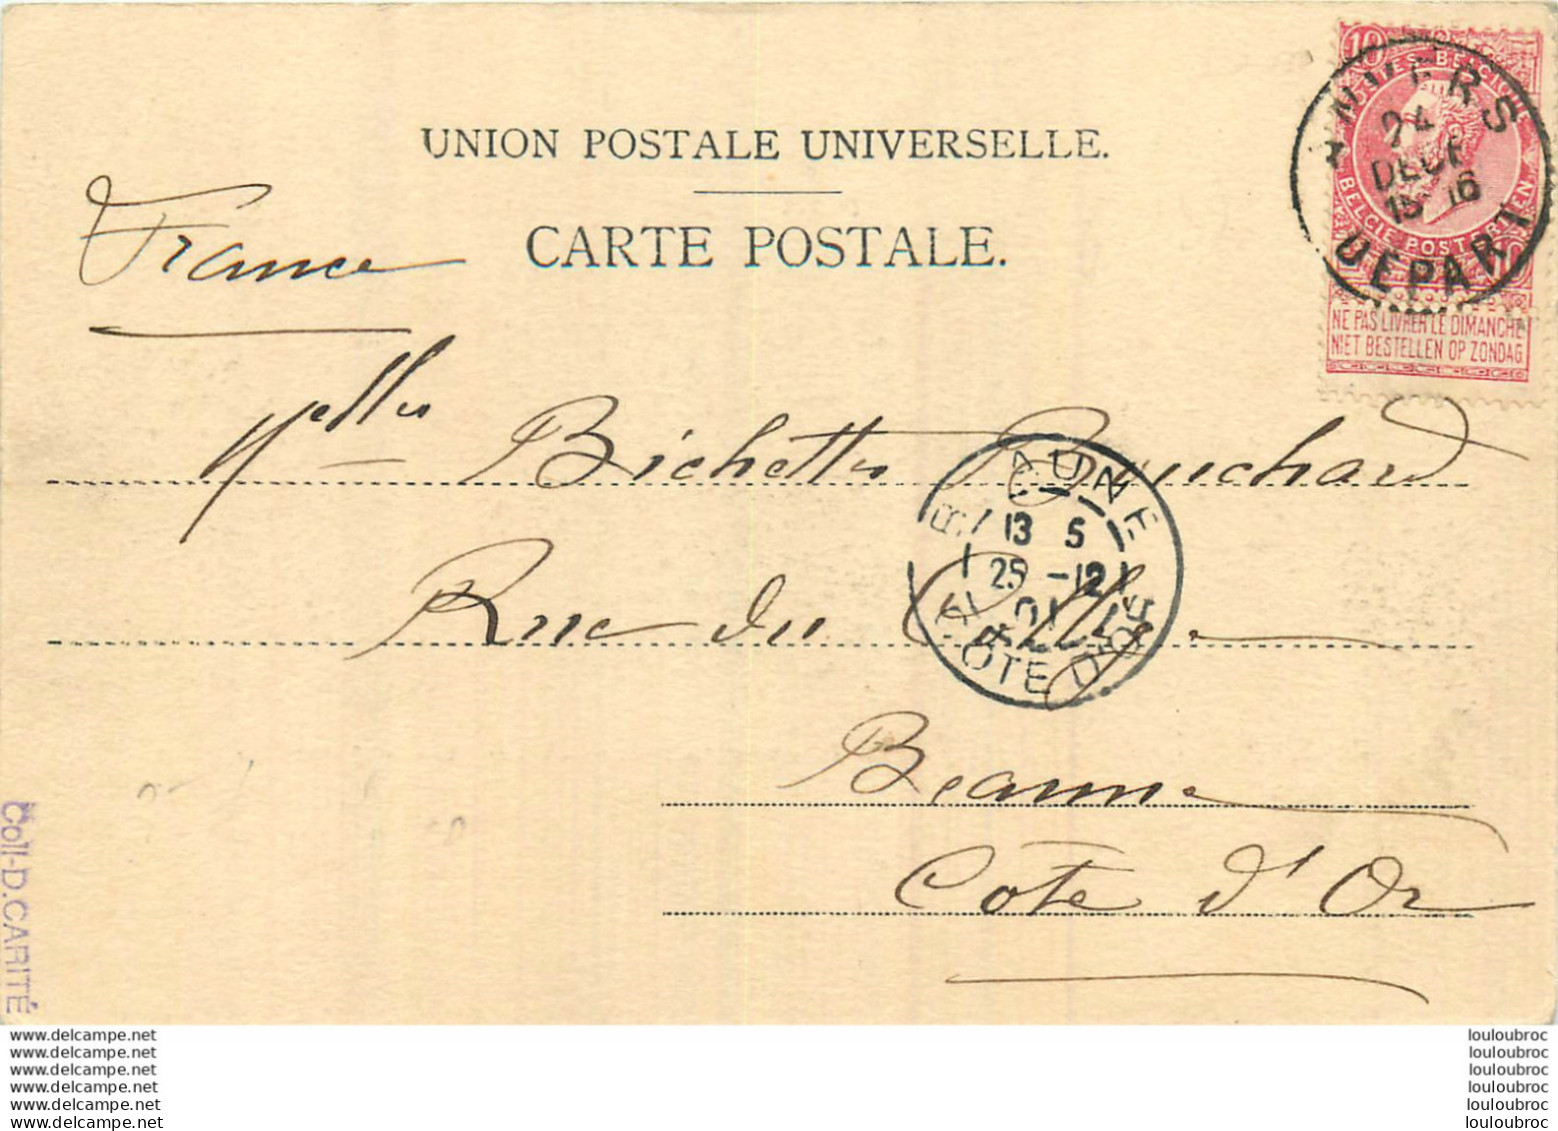 UNION POSTALE UNIVERSELLE.
CARTE POSTALE.
France
10
BELGIE POSTERIJEN
10
NE PAS LIVRER LE DIMANCHE
NIET BESTELLEN OP ZONDAG
ANVERS
24
DECE
15 16
DEPART
Melles Bichettes Bouchard
BEAUNE
13 5
25 -12
01
COTE D'OR
Rue du
Beaune
Cote d'Or
Coll-D.CARITÉ
www.delcampe.net
www.delcampe.net
www.delcampe.net
www.delcampe.net
www.delcampe.net
www.delcampe.net
louloubroc
louloubroc
louloubroc
louloubroc
louloubroc
louloubroc